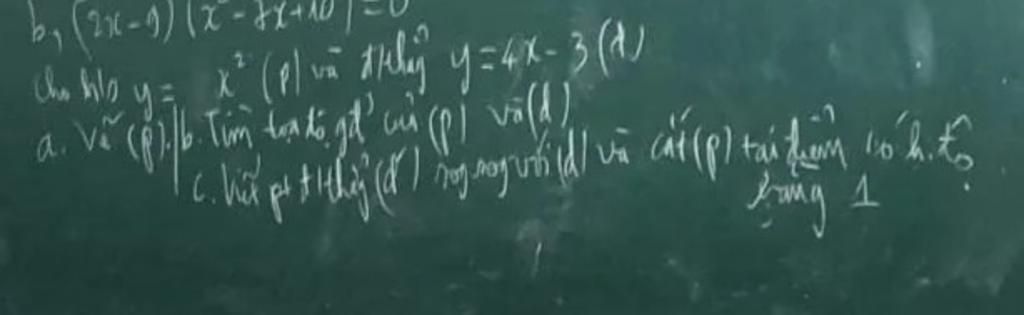 b, (2x-9)(x²-7x+10)=0
Cho h/s y= x² (P) và đ/thẳng y=4x-3 (d)
a. Vẽ (P). b. Tìm toạ độ gđ' của (P) và (d)
c. Viết pt đ/thẳng (d') sog sog với (d) và cắt (P) tại điểm có h. độ
bằng 1